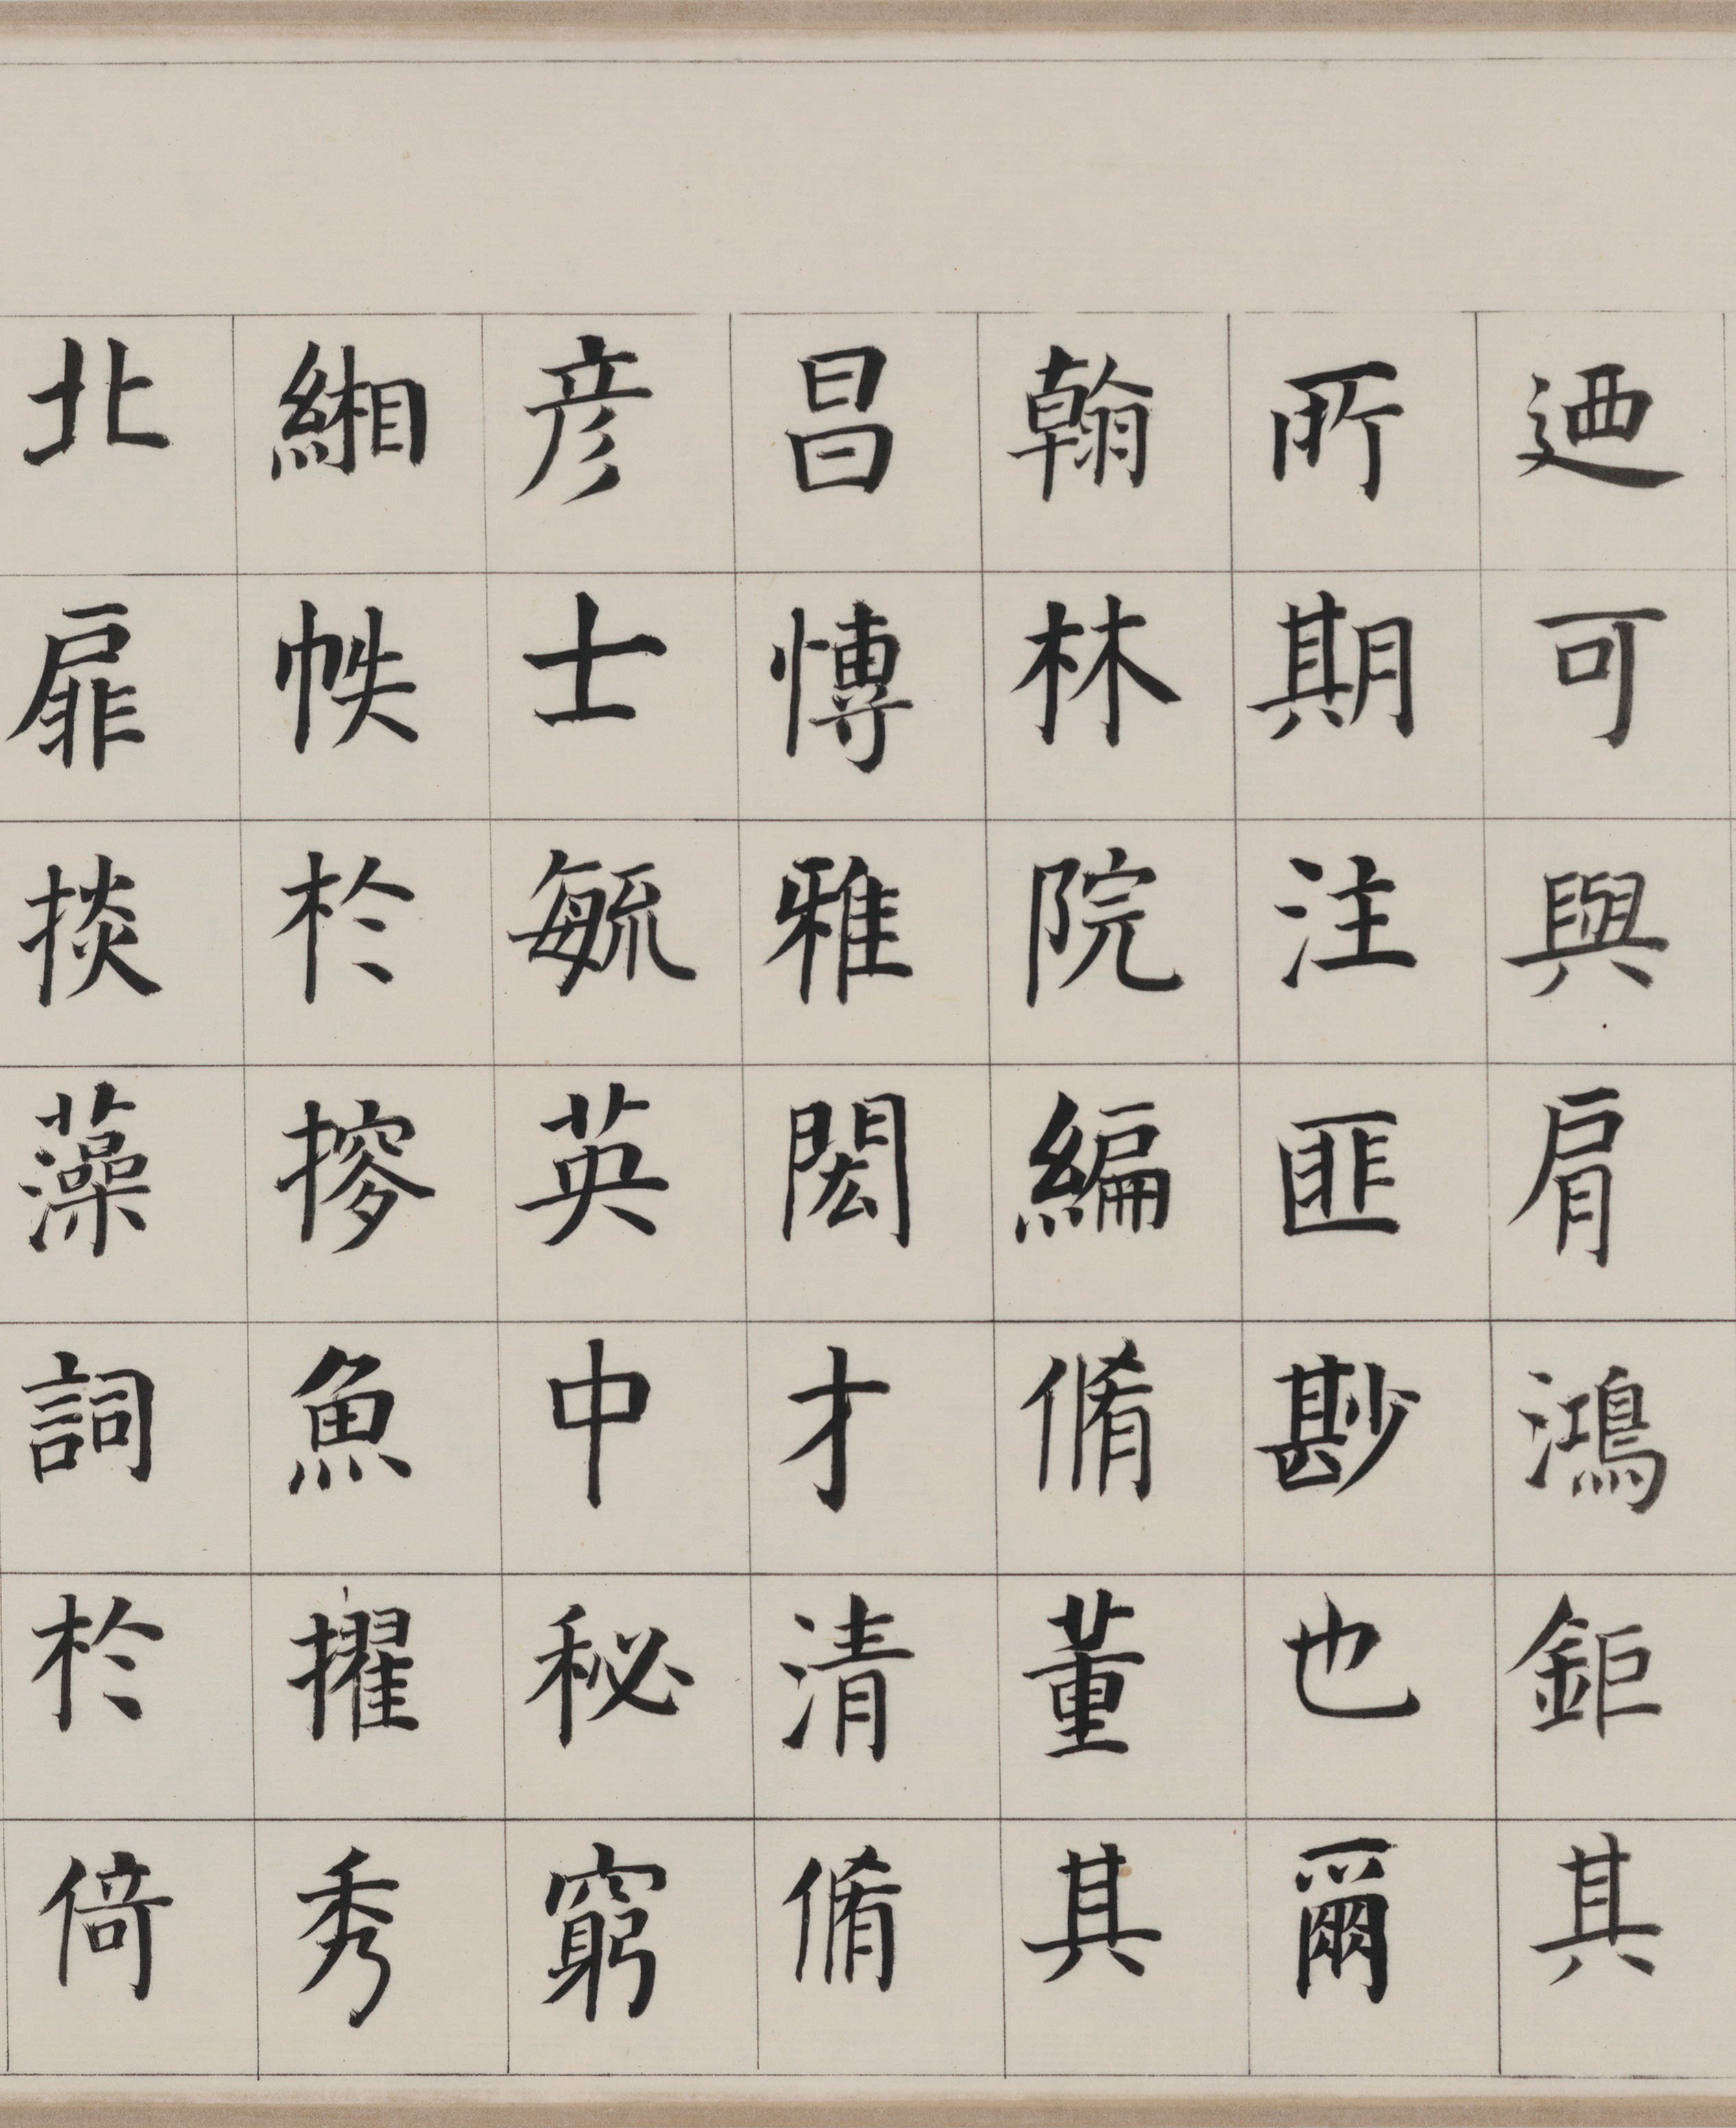 迺可與肩鴻鉅其
所期注匪尠也爾
翰林院編脩董其
昌愽雅閎才清脩
彦士毓英中秘窮
緗帙於摻魚擢秀
北扉掞藻詞於倚